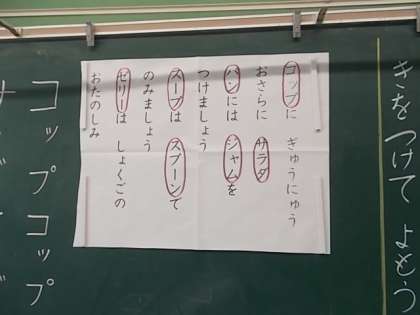 きをつけて よもう
コップに ぎゅうにゅう
おさらに サラダ
パンには ジャムを
つけましょう
スープは スプーンで
のみましょう
ゼリーは しょくごの
おたのしみ
コップ コップ